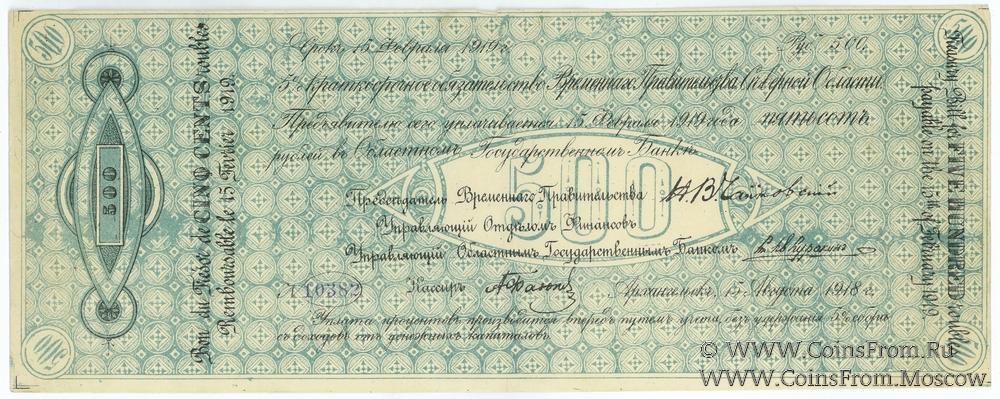 Срокъ 15 Февраля 1919 г. Руб. 500.
5% краткосрочное обязательство Временнаго Правительства Северной Области.
Предъявителю сего уплачивается 15 Февраля 1919 года пятьсотъ
рублей въ Областномъ Государственномъ Банкѣ
500
Председатель Временнаго Правительства Н.В. Чайковскій
Управляющій Отдѣломъ Финансовъ
Управляющій Областнымъ Государственнымъ Банкомъ
№ 10382 Кассиръ Архангельскъ, 15 Августа 1918 г.
Уплата процентовъ производится впередъ путемъ учета, безъ удержанія 5% сбора
съ доходовъ отъ денежныхъ капиталовъ.
500
Bon du Trésor de CINQ CENTS roubles
Remboursable le 15 Février 1919.
Treasury Bill for FIVE HUNDRED roubles
payable on the 15th of February 1919
500
500
500
500
© WWW.CoinsFrom.Ru
WWW.CoinsFrom.Moscow